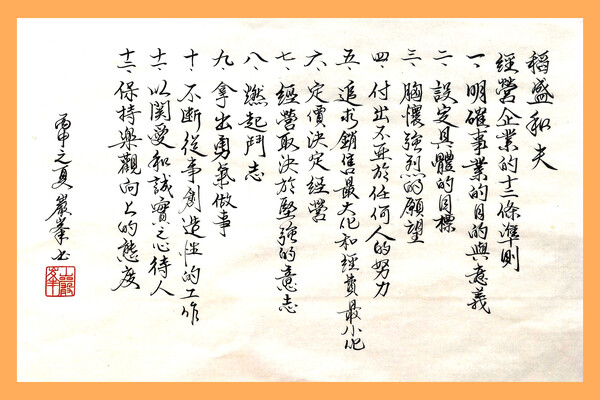 稻盛和夫
經營企業的十二條準則
一、明確事業的目的與意義
二、設定具體的目標
三、胸懷強烈的願望
四、付出不亞於任何人的努力
五、追求銷售最大化和經費最小化
六、定價決定經營
七、經營取決於堅強的意志
八、燃起鬥志
九、拿出勇氣做事
十、不斷從事創造性的工作
十一、以関愛和誠實之心待人
十二、保持樂觀向上的態度
丙申之夏巖峯书